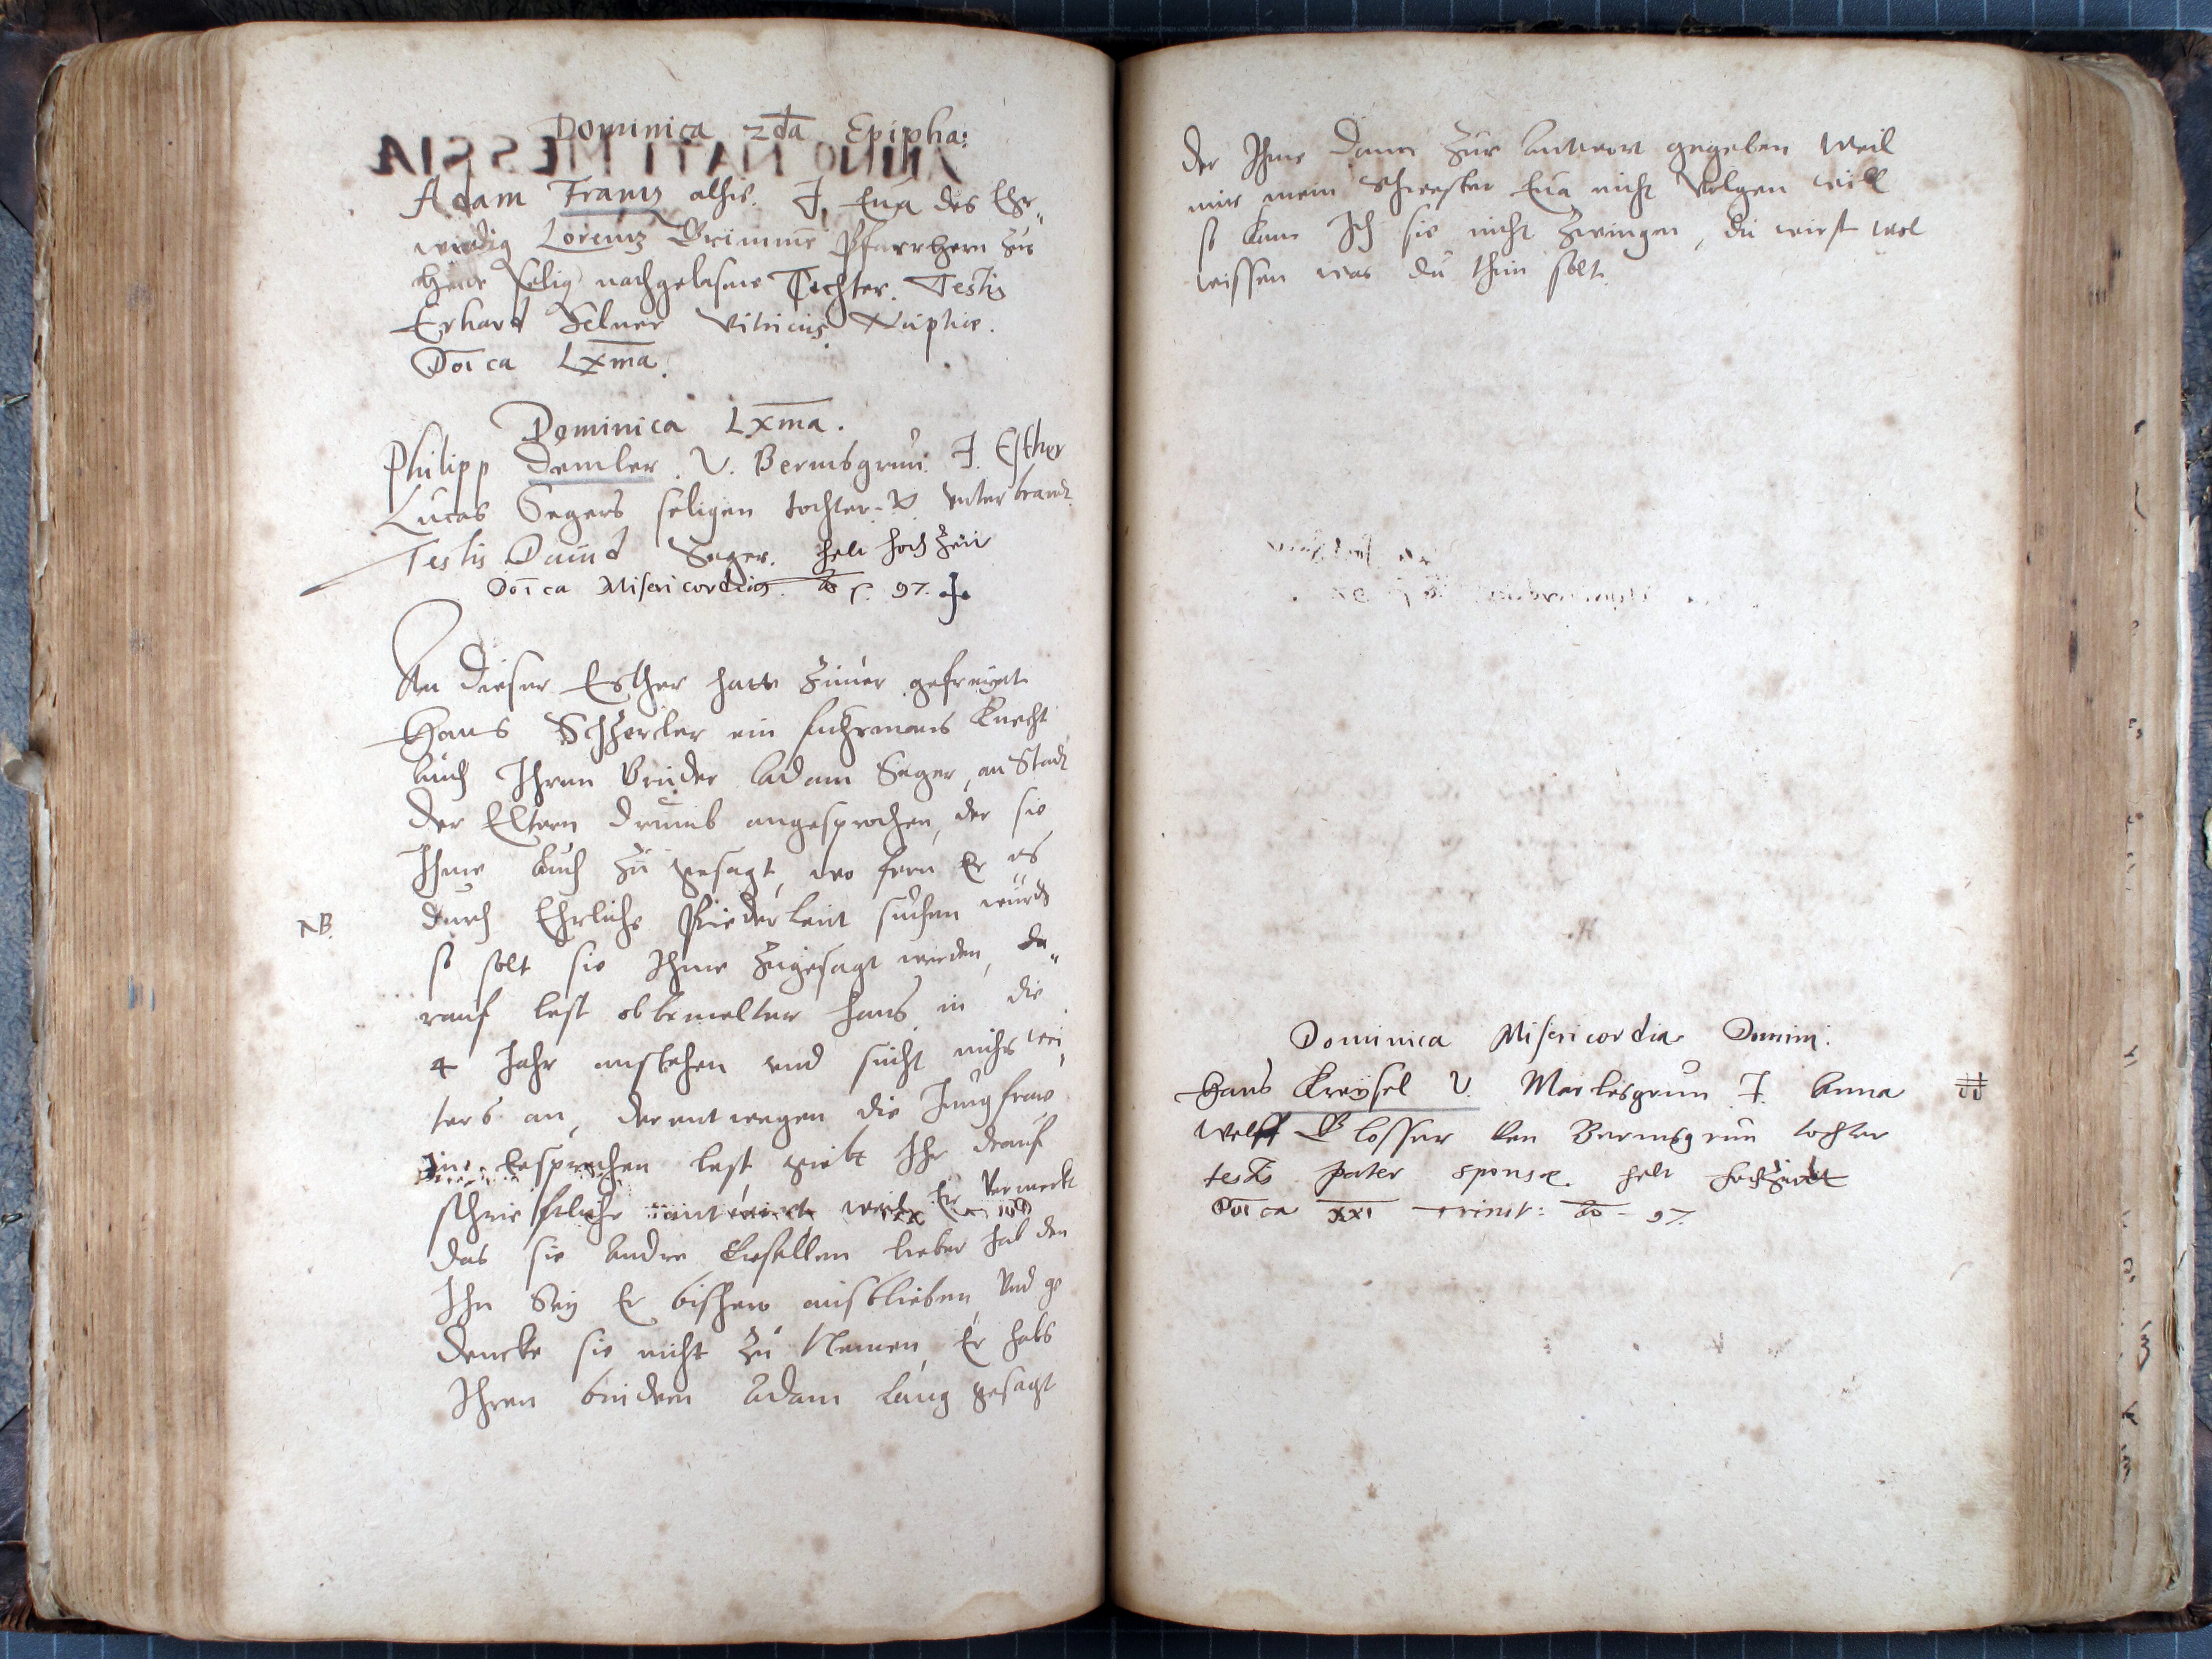 Dominica 2da Epipha:
Adam Frantz alhie. J. Eua des Ehr„
wirdig Lorentz Grimme Pfarrhern zur
selig nachgelasene Tochter. Testis
Erhard Selner Vitricus Nuptiae.
Doica Lxma.
Dominica Lxma.
Philipp Demler V. Bermsgrun. J. Esther
Lucas Segers seligen tochter. V. Vnterbrandt
Testis Dauid Seger. helt hochzeit
Doica Misericordias ao p. 97.
An dieser Esther hatte zuuer gefreyet
Hans Schercler ein fuhrmans Knecht
Auch Ihren Bruder Adam Seger, an Stadt
der Eltern drumb angesprochen, der sie
Ihme auch zu gesagt, wo fern Er es
NB.
durch Ehrliche Biederleut suchen wurde
so solt sie Ihme zugesagt werden, da„
rauf lest obbemelter Hans in die
4 Jahr anstehen vnd sucht nichts wei„
ters an, derentwegen die Jungfraw
besprechen lest, giebt Ihr drauf
schrieftliche antwort weil Er vermerkt
das sie andre Gesellen lieber hab den
Ihn Sey Er bishero aussblieben, Vnd ge
dencke sie nicht zu Nemen, Er habs
Ihren bruedern Adam lang gesagt
der Ihme dann zur Antwort gegeben Weil
mir mein Schwester Eua nicht Volgen will
so kann Ich sie nicht zwingen, du wirst wol
wissen was du thun solt.
Dominica Misericordias Domini.
Hans Kreysel V. Marlesgrun J. Anna
Wolff Glosser Von Bermsgrun tochter
testis pater sponsae. helt hochzeit
Doica XXI Trinit: ao - 97.